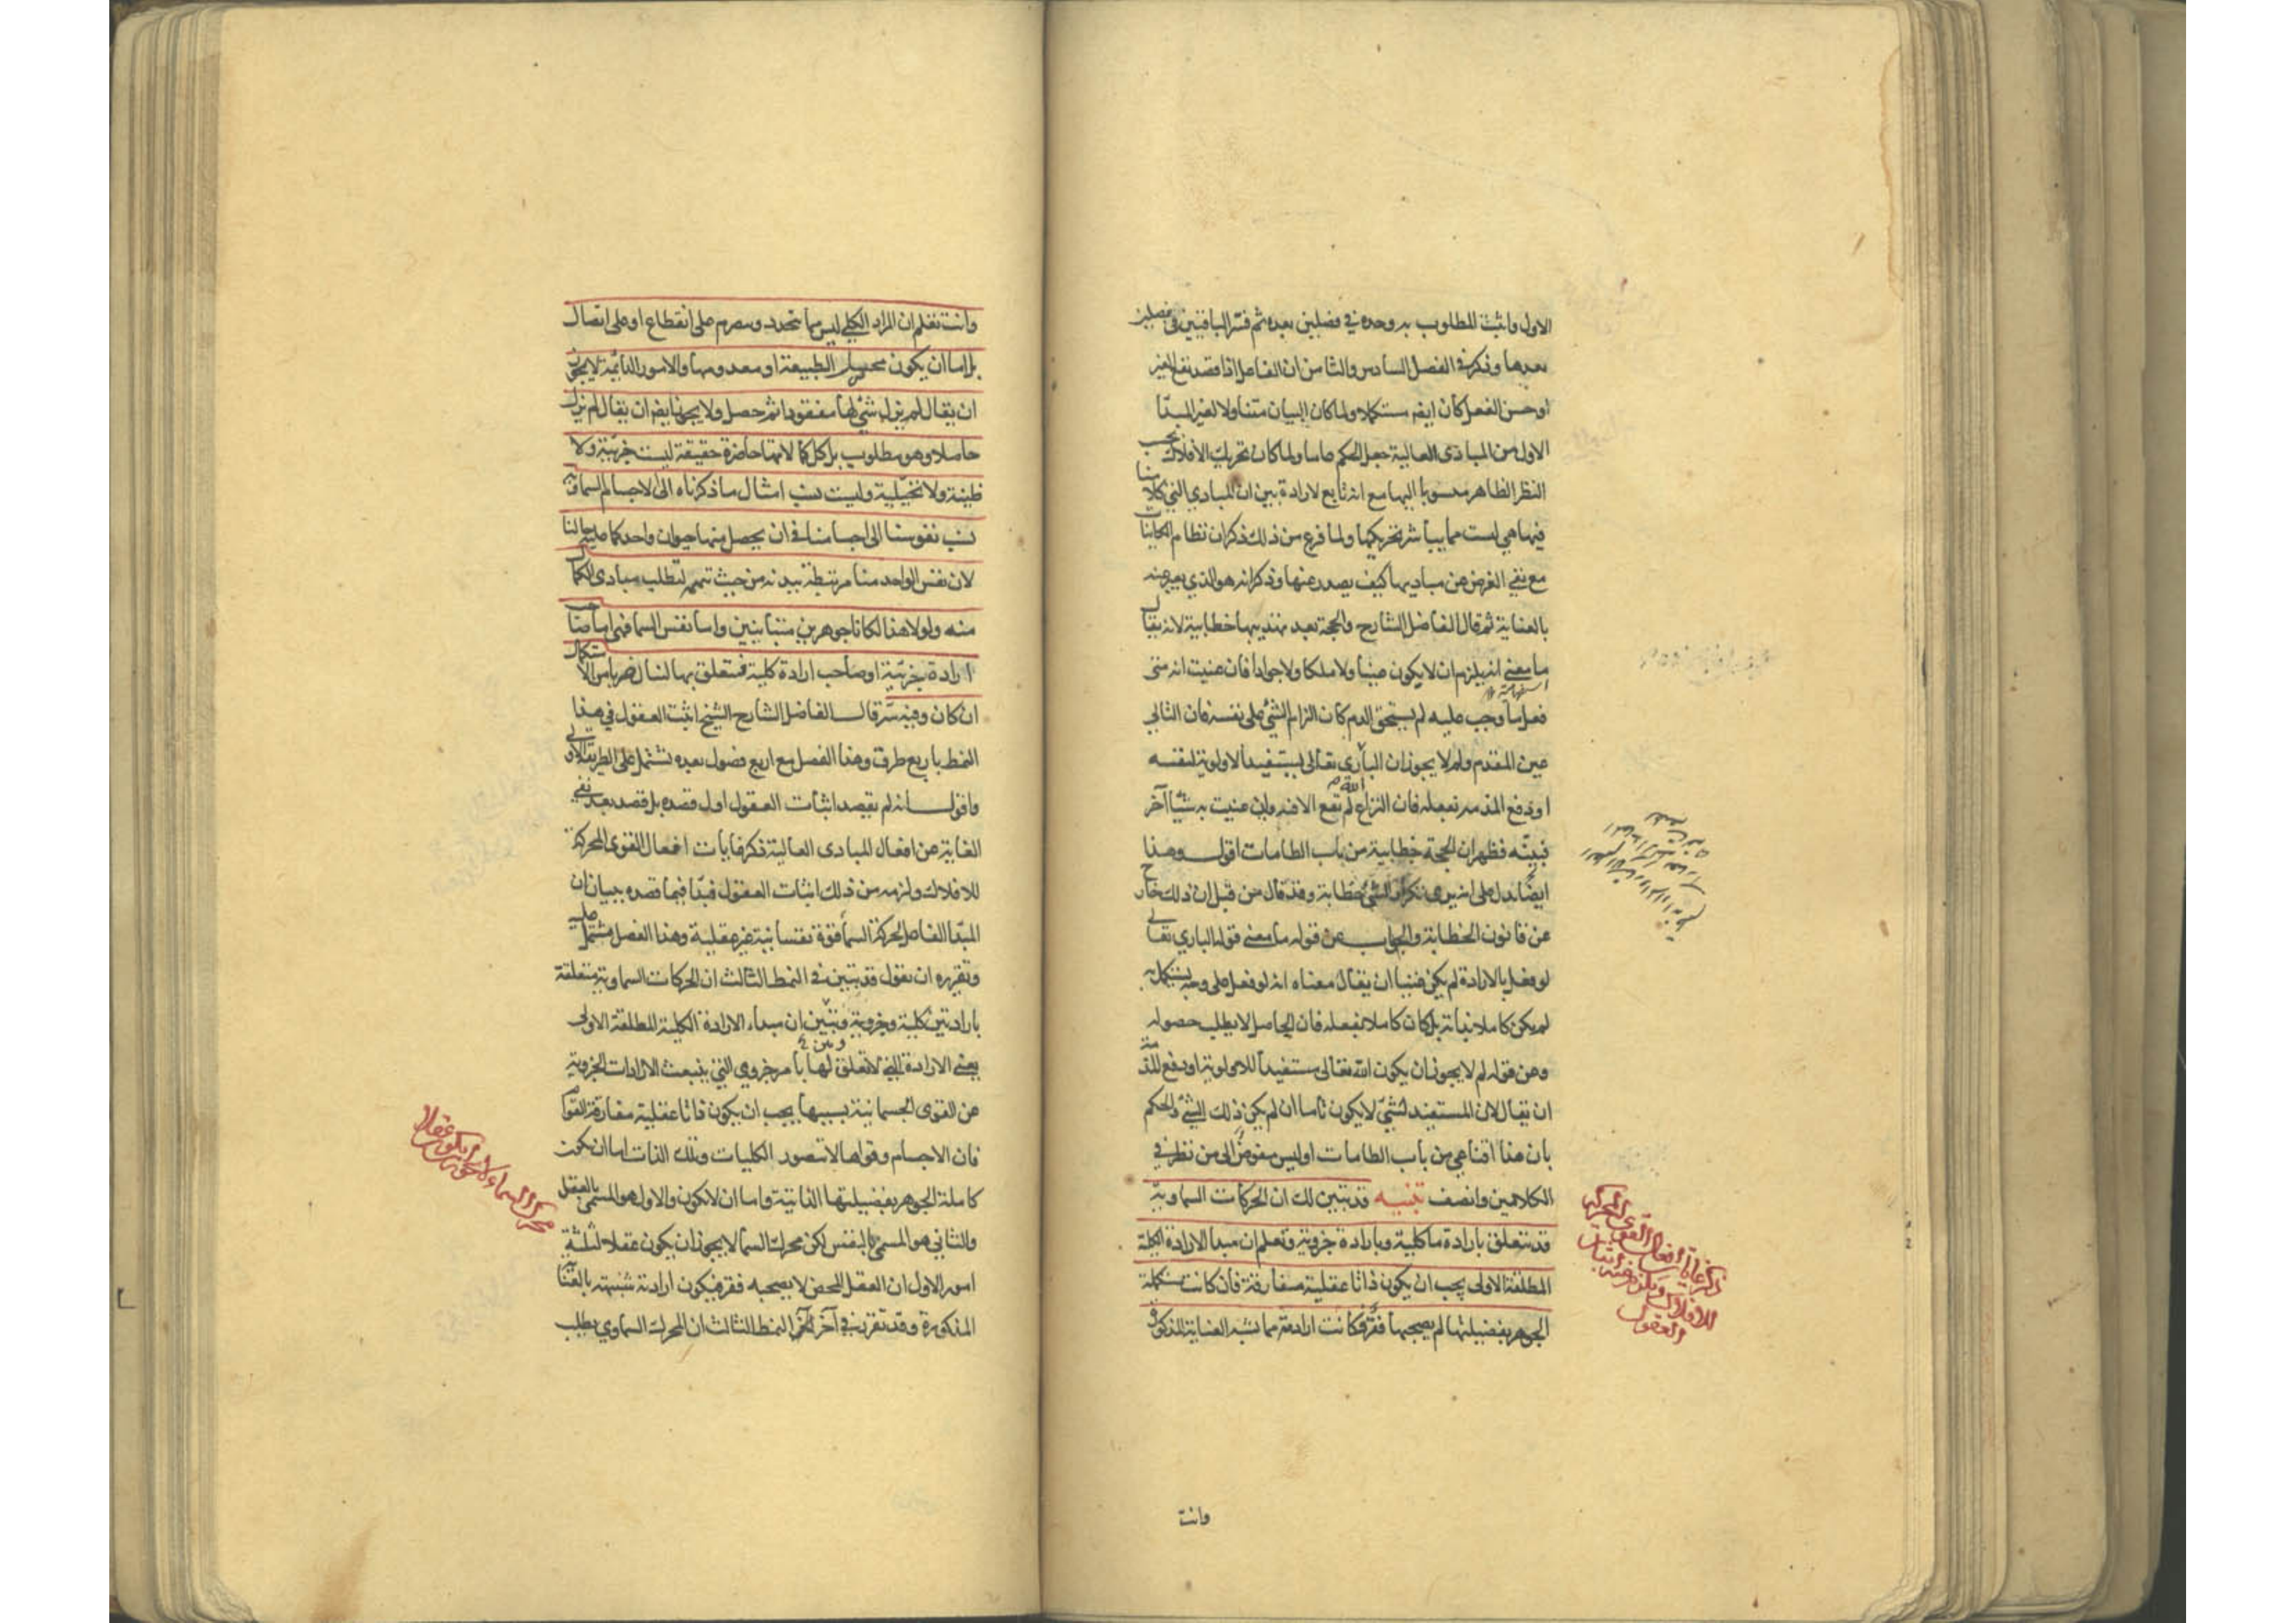 الاول واثبت المطلوب به وحده في فصلين بعده ثم فسر الباقيين في فصلين
بعدها وذكر في الفصل السادس والثامن ان الفاعل اذا قصد نفع الغير
او حسن الفعل كان ايضا مستكملا ولما كان البيان متناولا لغير المبدأ
الاول من المبادى العالية جعل الحكم عاما ولما كان تحريك الافلاك بحسب
النظر الظاهر منسوبا اليها مع انه تابع لارادة بين ان المبادي التي كلامنا
فيها هي ليست مما يباشر تحريكها ولما فرغ من ذلك ذكر ان نظام الكاينات
مع نفي الغرض عن مباديها كيف يصدر عنها وذكر انه هو الذي يعبر عنه
بالعناية ثم قال الفاضل الشارح والحجة بعد تهذيبها خطابية لانه يقال
ما معنى انه يلزم ان لا يكون غنيا ولا ملكا ولا جوادا فان عنيت انه متى
فعل ما وجب عليه لم يستحق الذم كان الزام الشئ على نفسه فان التالي
عين المقدم ولم لا يجوز ان البارى تعالى يستفيد الاولوية لنفسه
او دفع المذمه بفعله فان النزاع لم يقع الا فيه وان عنيت به شيئا آخر
فبينه فظهر ان الحجة خطابية من باب الطامات اقول وهذا
ايضا يدل على انه يرى تكرار الشئ خطابة وقد قال من قبل ان ذلك خارج
عن قانون الخطابة والجواب عن قوله ما معنى قوله الباري تعالى
لو فعل بالارادة لم يكن غنيا ان يقال معناه انه لو فعل على وجه يستكمل به
لم يكن كاملا بذاته بل كان كاملا بفعله فان الحاصل لا يطلب حصوله
وعن قوله لم لا يجوز ان يكون الله تعالى مستفيدا للاولوية او دفع المذمة
ان يقال لان المستفيد لشئ لا يكون تاما ان لم يكن ذلك الشئ والحكم
بان هذا اقناعي من باب الطامات او ليس مفوض الى من نظر في
الكلامين وانصف تنبيه قد تبين لك ان الحركات السماوية
قد تتعلق بارادة ما كلية وبارادة جزوية وتعلم ان مبدأ الارادة الكلية
المطلقة الاولى يجب ان يكون ذاتا عقلية مفارقة فان كانت مستكملة
الجوهر بفضيلتها لم يصحبها فقر فكانت ارادته مما تشبه العناية المذكورة
ذكر غاية افعال القوى المحركة
للافلاك ويكون فيه اثبات
العقول
وانت
وانت تعلم ان المراد الكلي ليس مما يتجدد ويتصرم على انقطاع او على اتصال
بل اما ان يكون محصل الطبيعة او معدومها والامور الدائمة لا يجوز
ان يقال لم يزل شئ لها مفقودا ثم حصل ولا يجوز ايضا ان يقال لم يزل
حاصلا وهو مطلوب بل كل كمالاتها حاضرة حقيقة ليست جزئية ولا
ظنية ولا تخيلية وليست نسب امثال ما ذكرناه الى الاجسام السماوية
نسب نفوسنا الى اجسامنا في ان يحصل منها حيوان واحد كما عليه حالنا
لان نفس الواحد منا مرتبطة ببدنه من حيث تتمم لتطلب مبادى الكمال
منه ولولا هذا لكانا جوهرين متباينين واما نفس السما فهي اما صاحب
ارادة جزئية او صاحب ارادة كلية فتتعلق بها لتنال ضربا من الاستكمال
ان كان وفيه سر قال الفاضل الشارح الشيخ اثبت العقول في هذا
النمط باربع طرق وهذا الفصل مع اربع فصول بعده تشتمل على الطريقة الاولى
واقول انه لم يقصد اثبات العقول اول قصده بل قصد بعد نفي
الغاية عن افعال المبادى العالية ذكر غايات افعال القوى المحركة
للافلاك ولزمه من ذلك اثبات العقول فبدأ فيما قصده ببيان ان
المبدأ الفاعل لحركة السما قوة نفسانية غير عقلية وهذا الفصل مشتمل عليه
وتقريره ان يقول قد تبين في النمط الثالث ان الحركات السماوية متعلقة
بارادتين كلية وجزوية وتبين ان مبداء الارادة الكلية المطلقة الاولى
يعني الارادة التي لا تعلق لها بامر جزوي التي ينبعث الارادات الجزوية
عن القوى الجسمانية بسببها يجب ان يكون ذاتا عقلية مفارقة القوام
فان الاجسام وقواها لا تتصور الكليات وتلك الذات اما ان تكون
كاملة الجوهر بفضيلتها الذاتية واما ان لا تكون والاول هو المسمى بالعقل
والثاني هو المسمى بالنفس لكن محرك السما لا يجوز ان يكون عقلا لثلثة
امور الاول ان العقل المحض لا يصحبه فقر فيكون ارادته شبيهة بالعناية
المذكورة وقد تقرر في آخر النمط الثالث ان المحرك السماوي يطلب
محرك السماء لا يجوز ان يكون عقلا